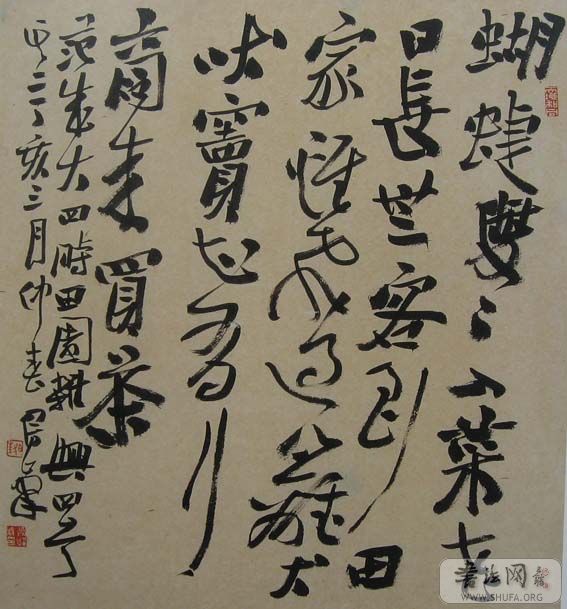 蝴蝶雙〻入菜花
日長無客到田
家雞飛過籬犬
吠竇知有行
商来買茶
范成大四時田園雜興
丁亥三月仲春
書法网
WWW.SHUFA.ORG